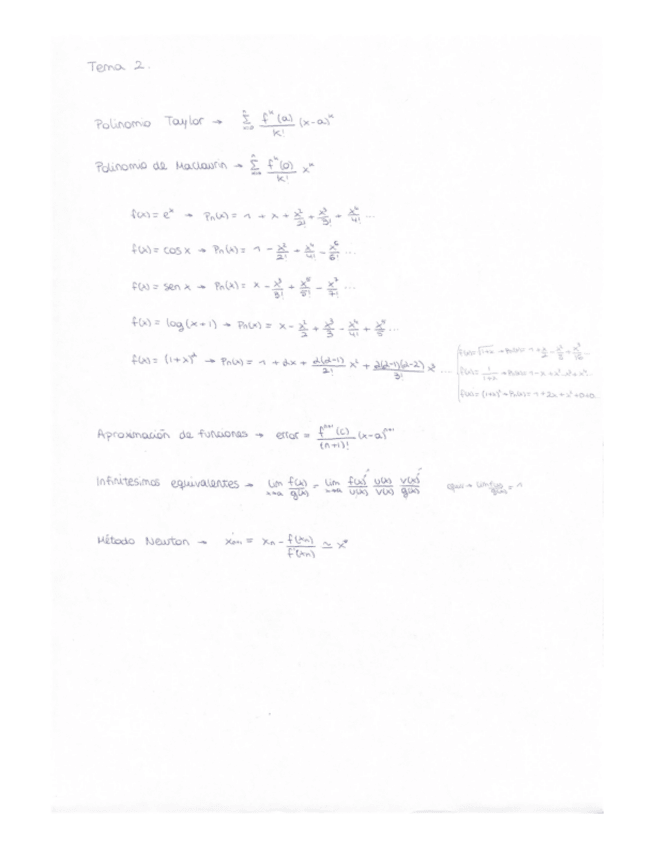 Tema 2.
Polinomio Taylor → Σ fᵏ(a)/k! (x-a)ᵏ
Polinomio de Maclaurin → Σ fᵏ(0)/k! xᵏ
f(x) = eˣ → Pn(x) = 1 + x + x²/2! + x³/3! + x⁴/4! ...
f(x) = cos x → Pn(x) = 1 - x²/2! + x⁴/4! - x⁶/6! ...
f(x) = sen x → Pn(x) = x - x³/3! + x⁵/5! - x⁷/7! ...
f(x) = log(x+1) → Pn(x) = x - x²/2 + x³/3 - x⁴/4 + x⁵/5 ...
f(x) = (1+x)^α → Pn(x) = 1 + αx + α(α-1)/2! x² + α(α-1)(α-2)/3! x³ ...
f(x) = √1+x → Pn(x) = 1 + x/2 - x²/8 + x³/16 ...
f(x) = 1/1+x → Pn(x) = 1 - x + x² - x³ + x⁴ ...
f(x) = (1+x)² → Pn(x) = 1 + 2x + x² + 0 + 0 ...
Aproximación de funciones → error = fⁿ⁺¹(c)/(n+1)! (x-a)ⁿ⁺¹
Infinitésimos equivalentes → lim x→a f(x)/g(x) = lim x→a f(x)/u(x) u(x)/v(x) v(x)/g(x)
lim f(x)/g(x) = 1
Método Newton → xn+1 = xn - f(xn)/f'(xn) ≃ x*